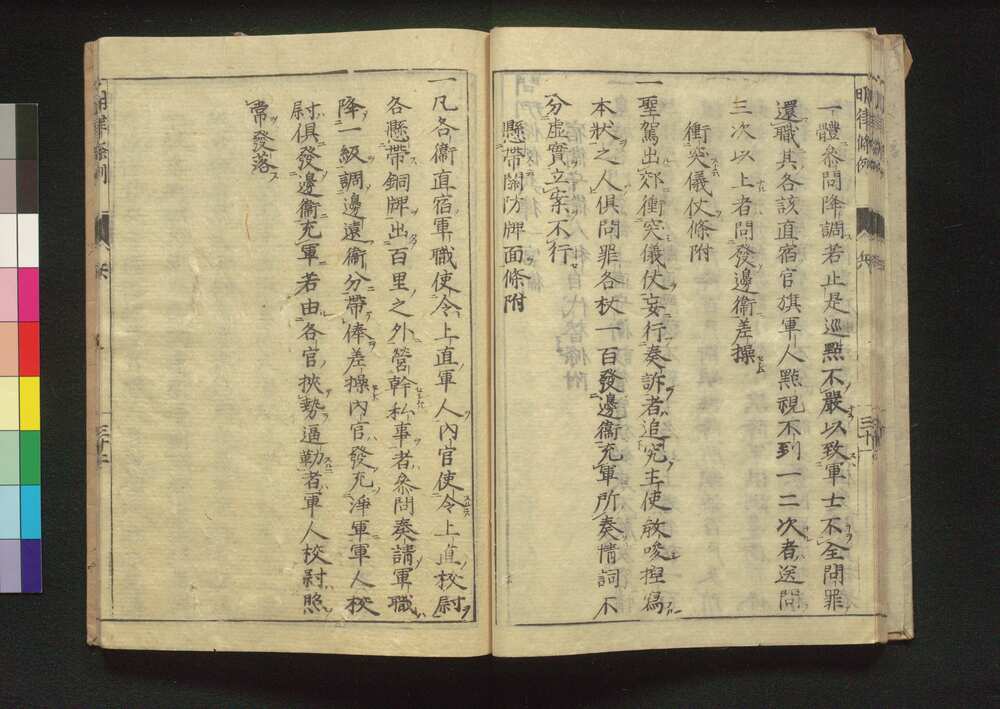 明律條例
兵
三十一
一體叅問降調若止是巡點不嚴以致軍士不全問罪
還職其各該直宿官旗軍人點視不到一二次者送問
三次以上者問發邊衞差操
衝突儀仗條附
一聖駕出郊衝突儀仗妄行奏訴者追究主使教唆捏寫
本狀之人俱問罪各杖一百發邊衞充軍所奏情詞不
分虛實立案不行
懸帶關防牌面條附
一凡各衞直宿軍職使令上直軍人內官使令上直校尉
各懸帶銅牌出百里之外營幹私事者叅問奏請軍職
降一級調邊遠衞分帶俸差操內官發充淨軍軍人校
尉俱發邊衞充軍若由各官挾勢逼勒者軍人校尉照
常發落
明律條例
三十二